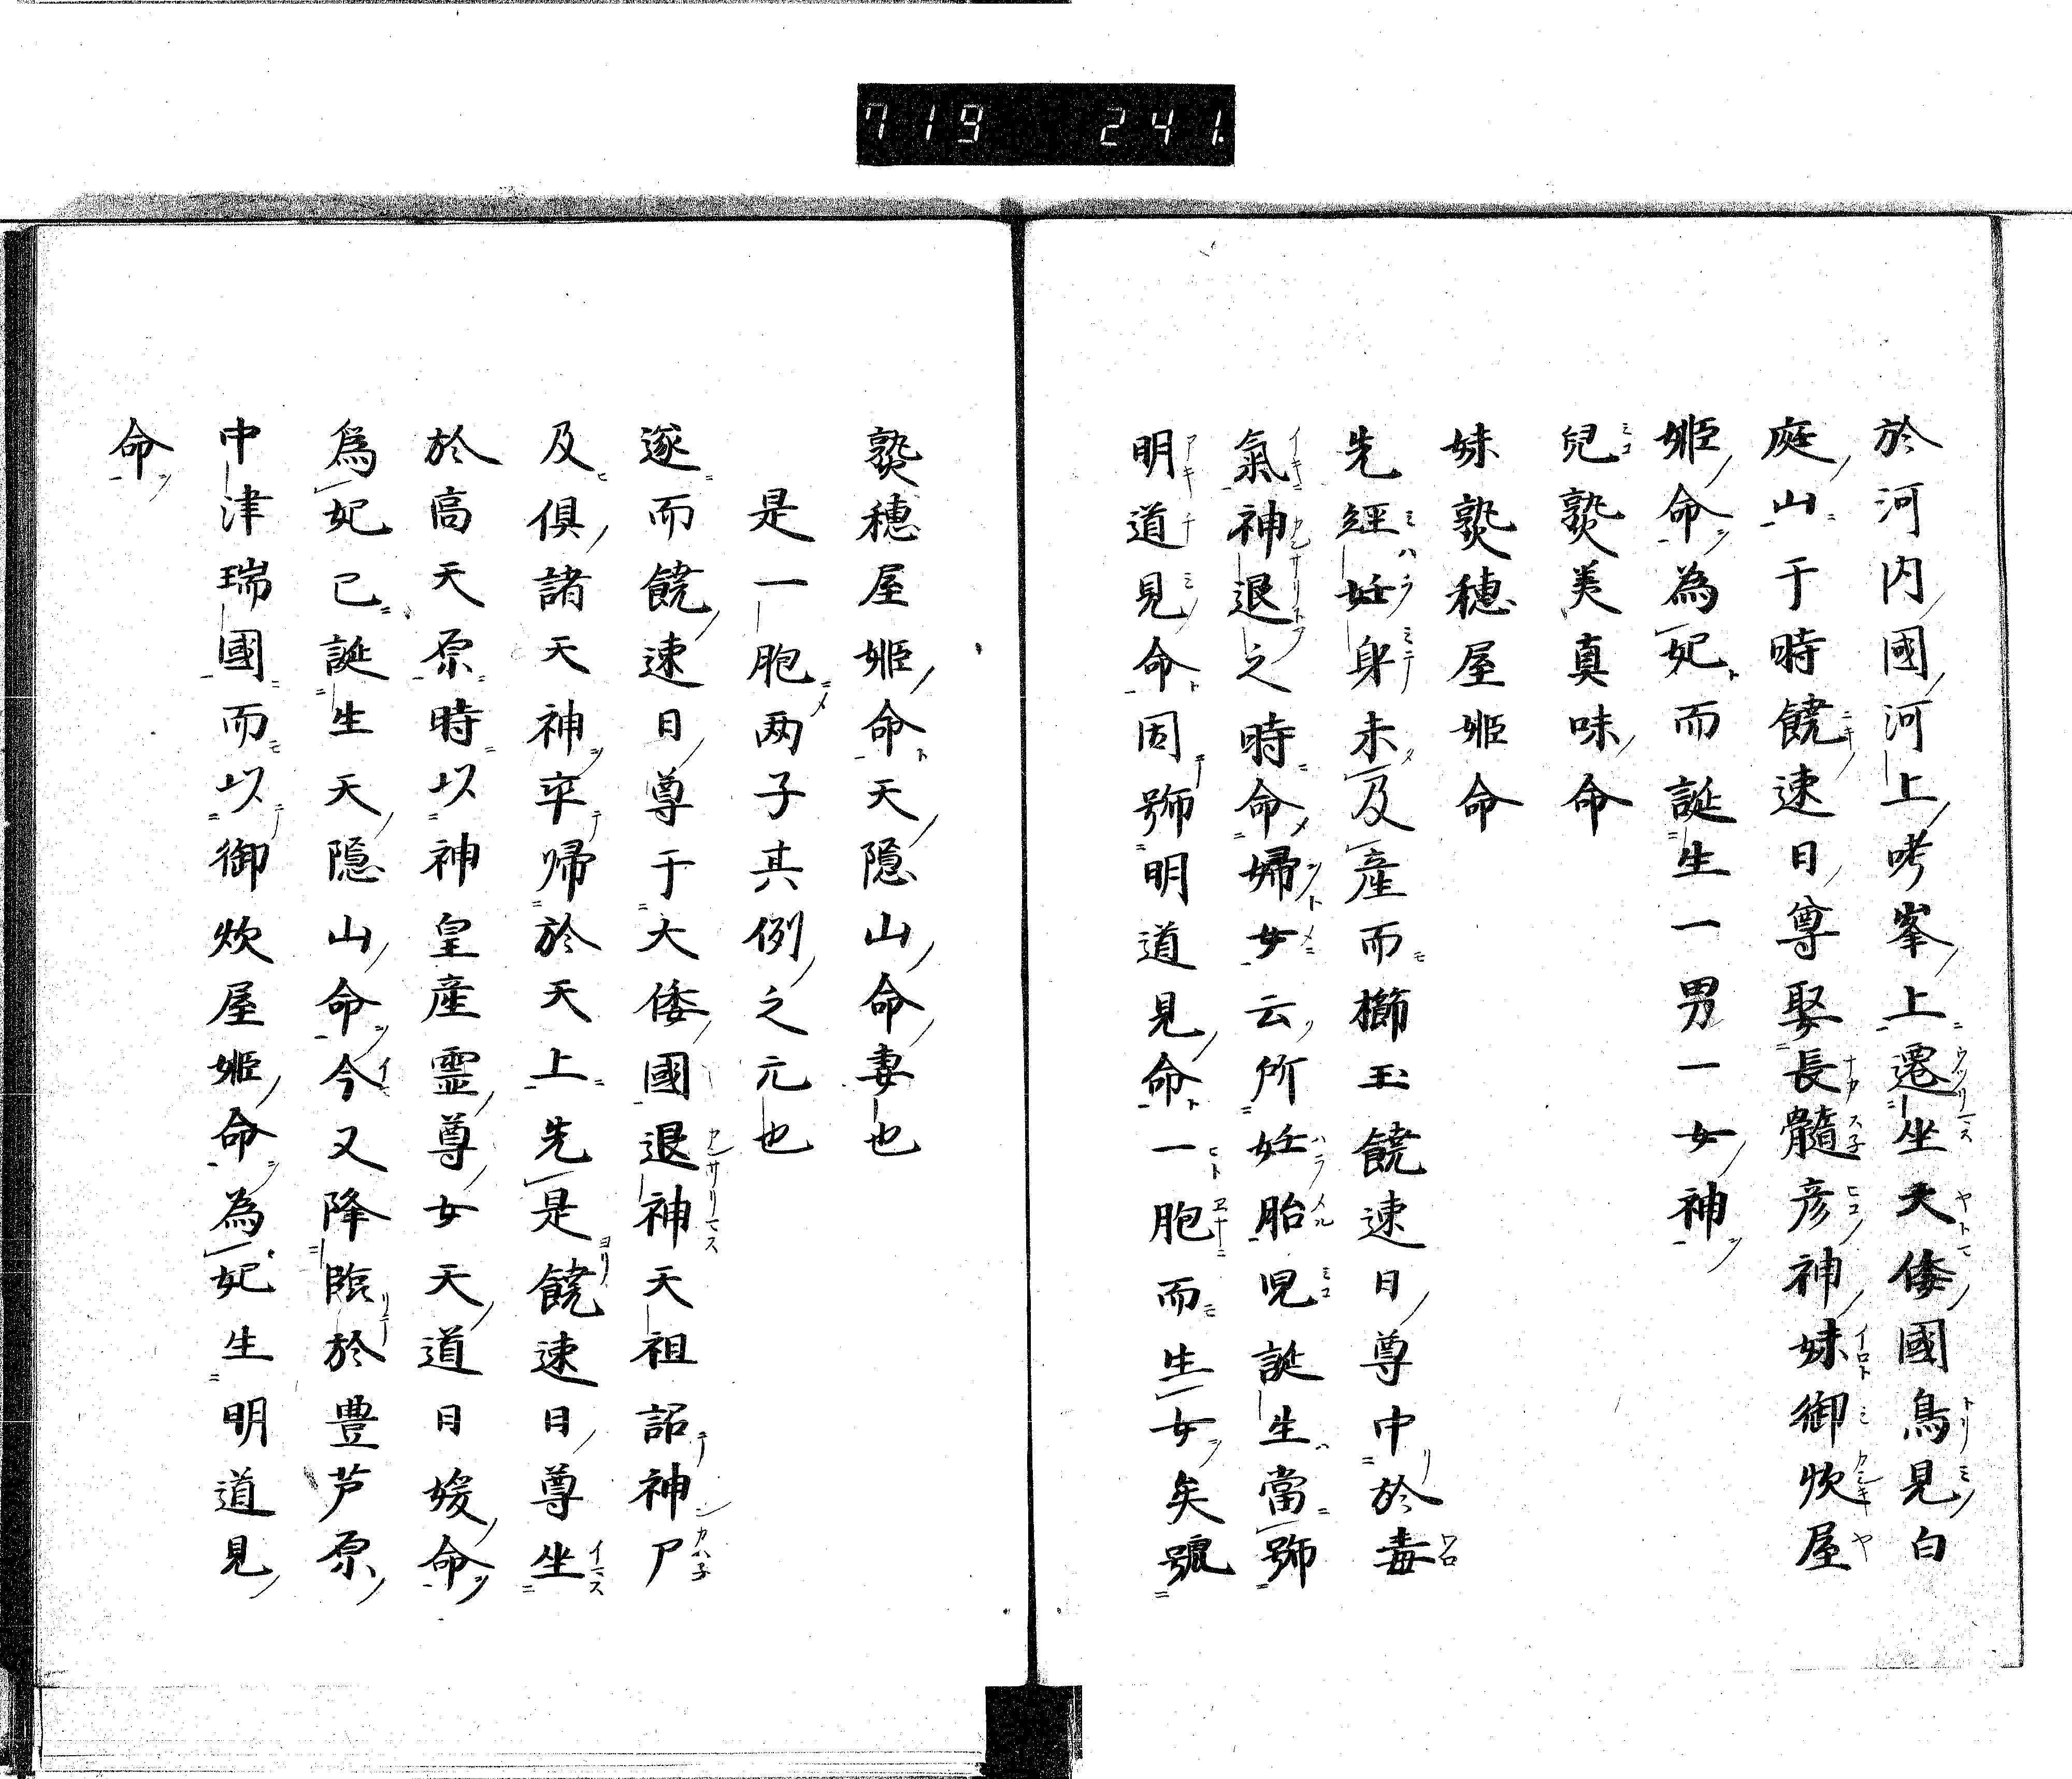 719 241.
於河内國河上哮峯上遷坐大倭國鳥見白
庭山于時饒速日尊娶長髓彦神妹御炊屋
姫命為妃而誕生一男一女神
兒𤎼美真味命
妹𤎼穂屋姫命
先經妊身未及産而櫛玉饒速日尊中於毒
氣神退之時命婦女云所妊胎児誕生當號
明道見命因號明道見命一胞而生女矣號
𤎼穂屋姫命天隠山命妻也
是一胞两子其例之元也
遂而饒速日尊于大倭國退神天祖詔神尸
及俱諸天神卒帰於天上先是饒速日尊坐
於高天原時以神皇産霊尊女天道日媛命
為妃已誕生天隠山命今又降臨於豊芦原
中津瑞國而以御炊屋姫命為妃生明道見
命